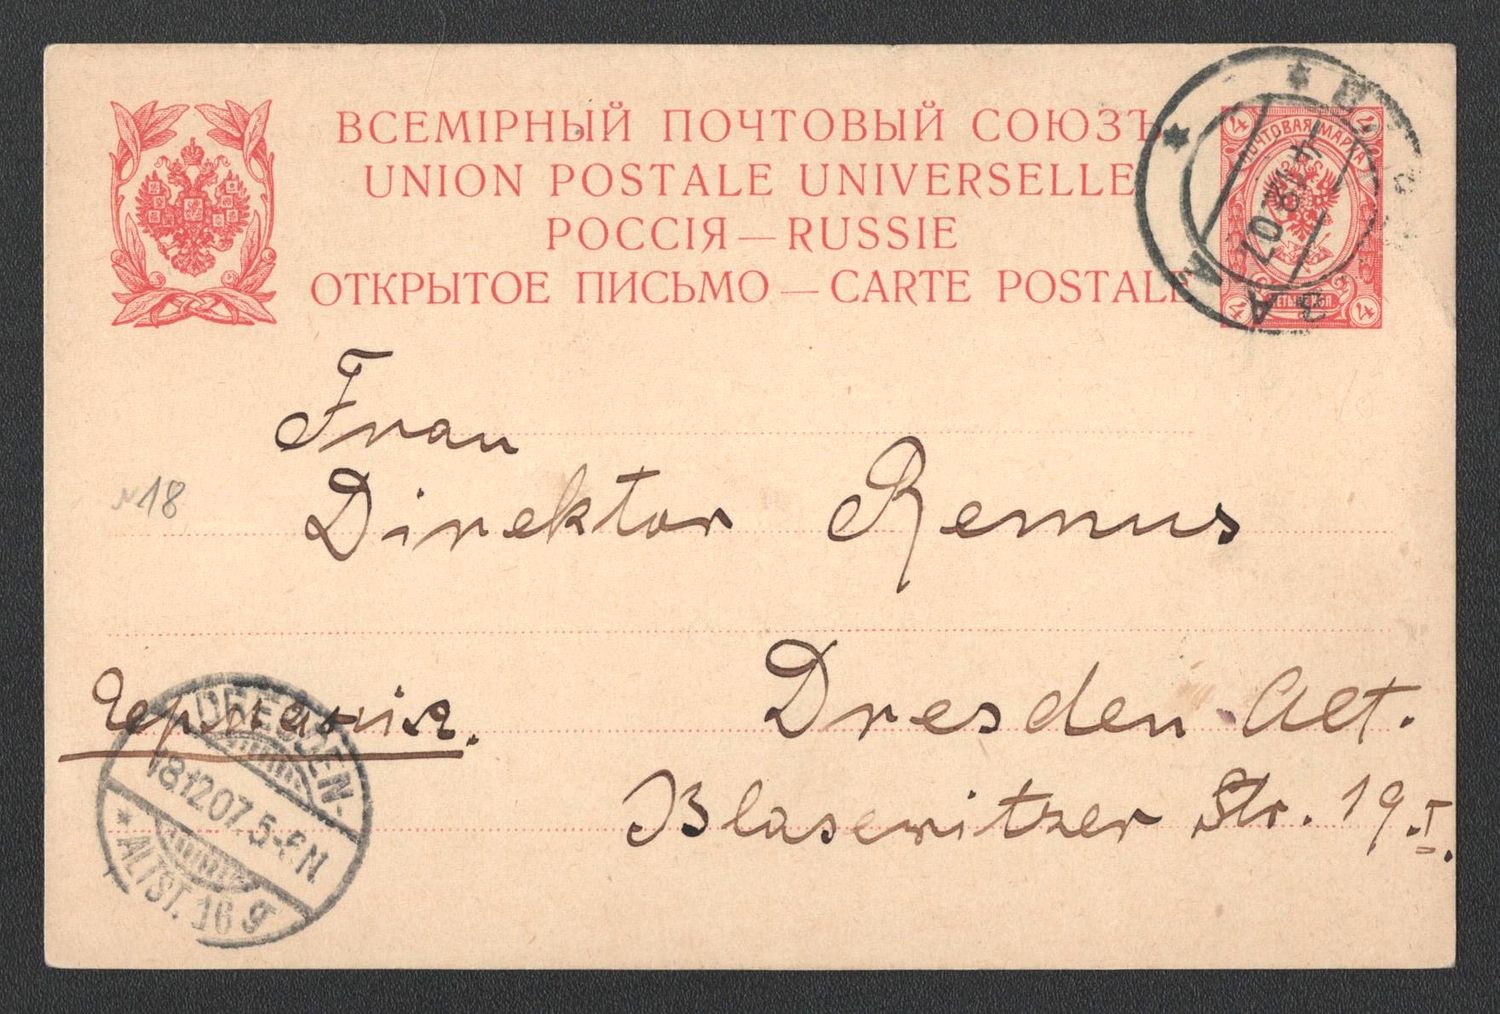 ВСЕМІРНЫЙ ПОЧТОВЫЙ СОЮЗЪ
UNION POSTALE UNIVERSELLE
РОССІЯ — RUSSIE
ОТКРЫТОЕ ПИСЬМО — CARTE POSTALE
4 ПОЧТОВАЯ МАРКА 4
4 12 07
4 4
Frau
Direktor Remus
18
Dresden Alt.
Германія.
Blasewitzer Str. 19.I.
DRESDEN-
18 12 07. 5-6N.
* ALTST. 16 g